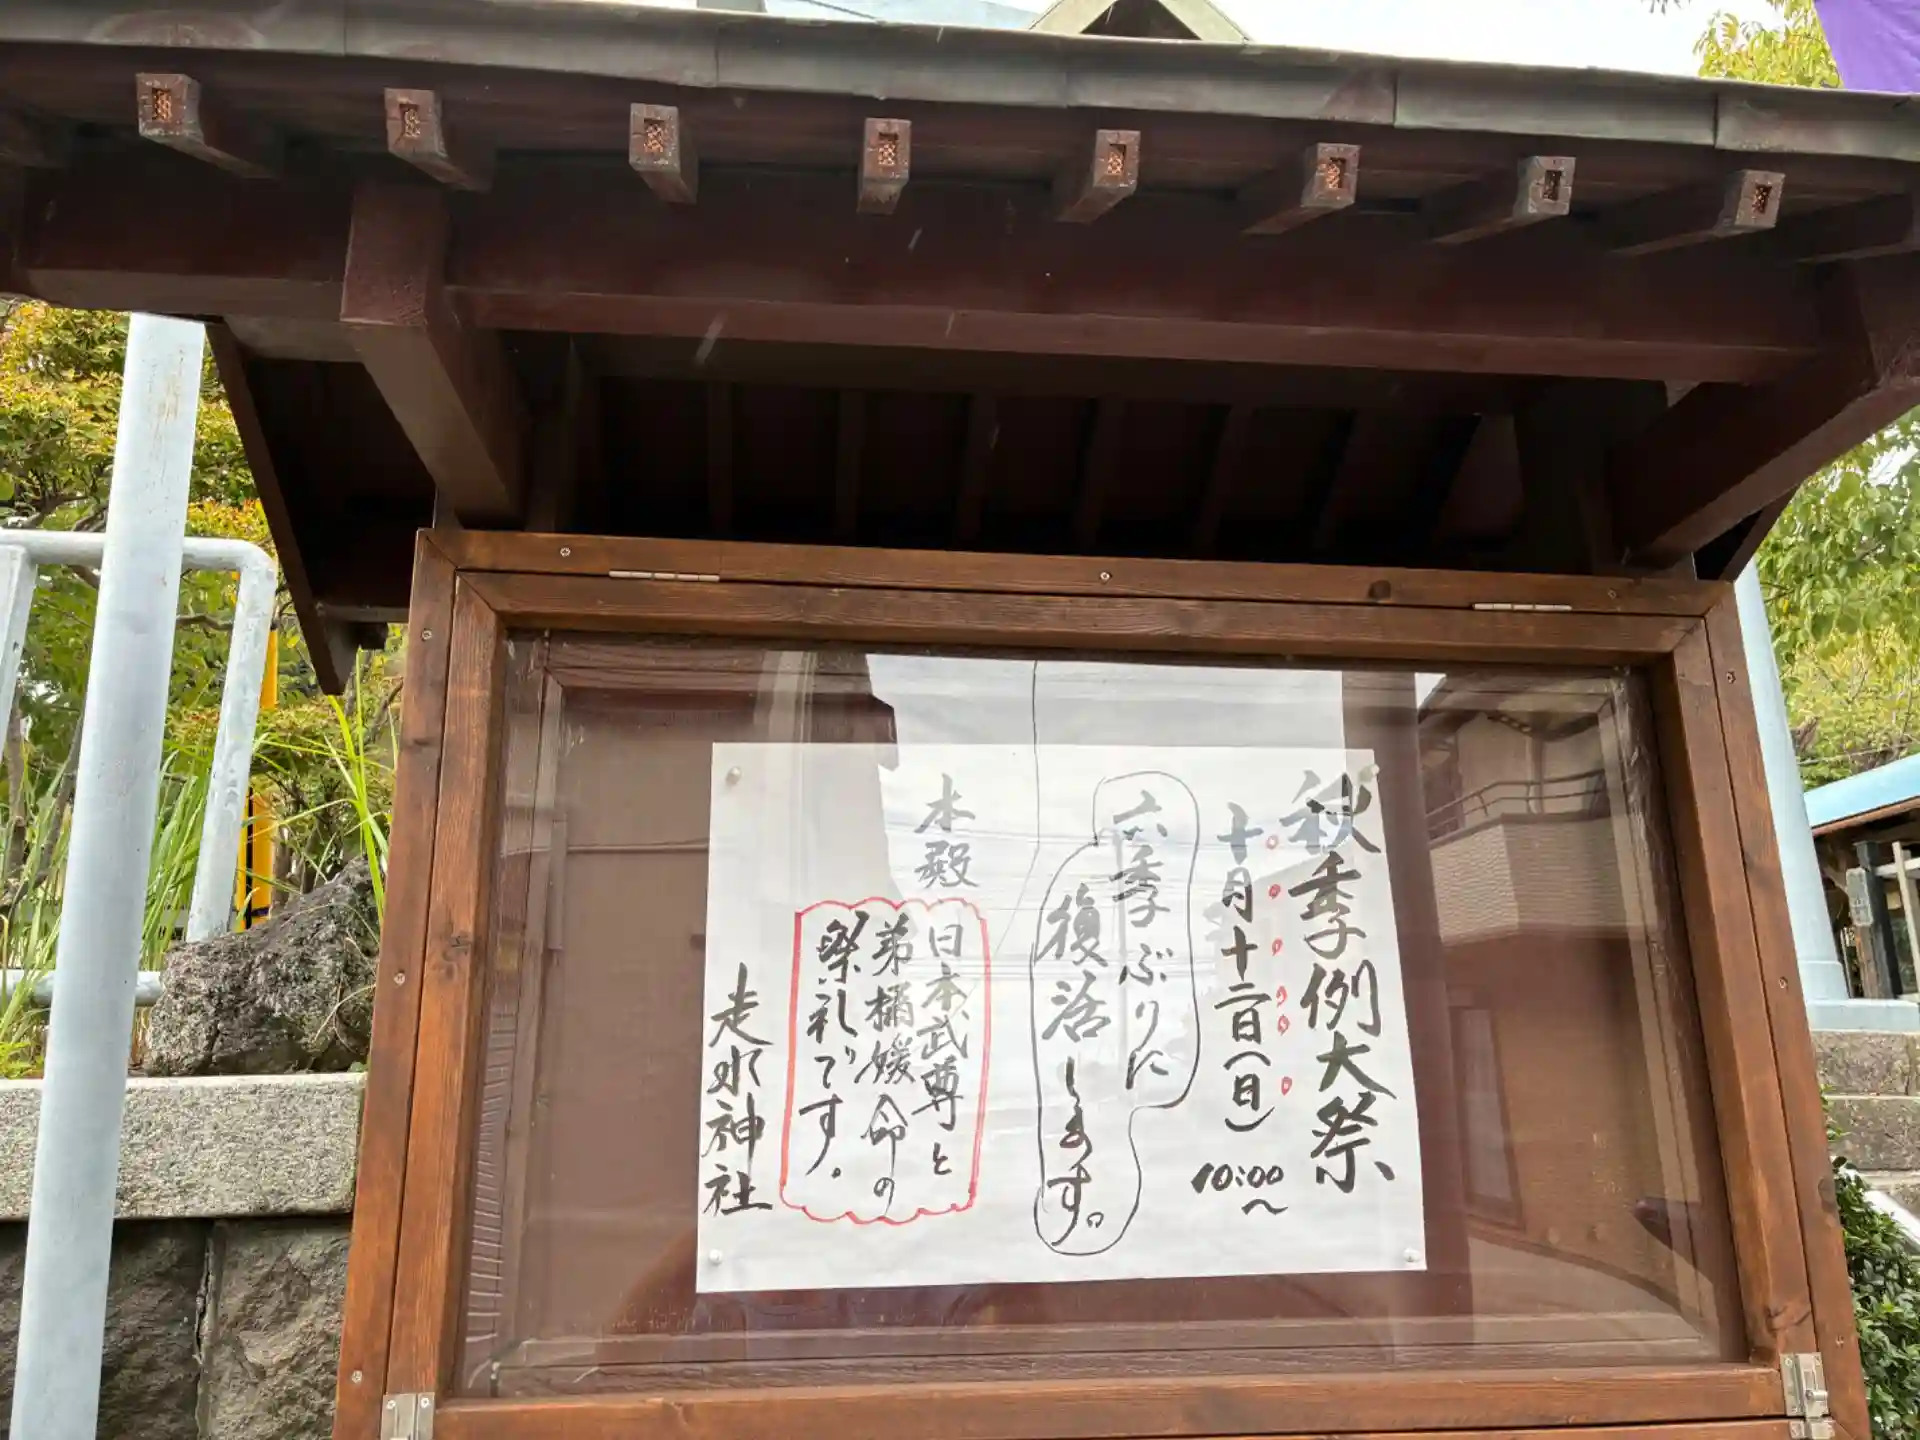 秋季例大祭
十月十二日(日)
10:00
〜
六季ぶりに
復活します。
本殿
日本武尊と
弟橘媛命の
祭礼です。
走水神社